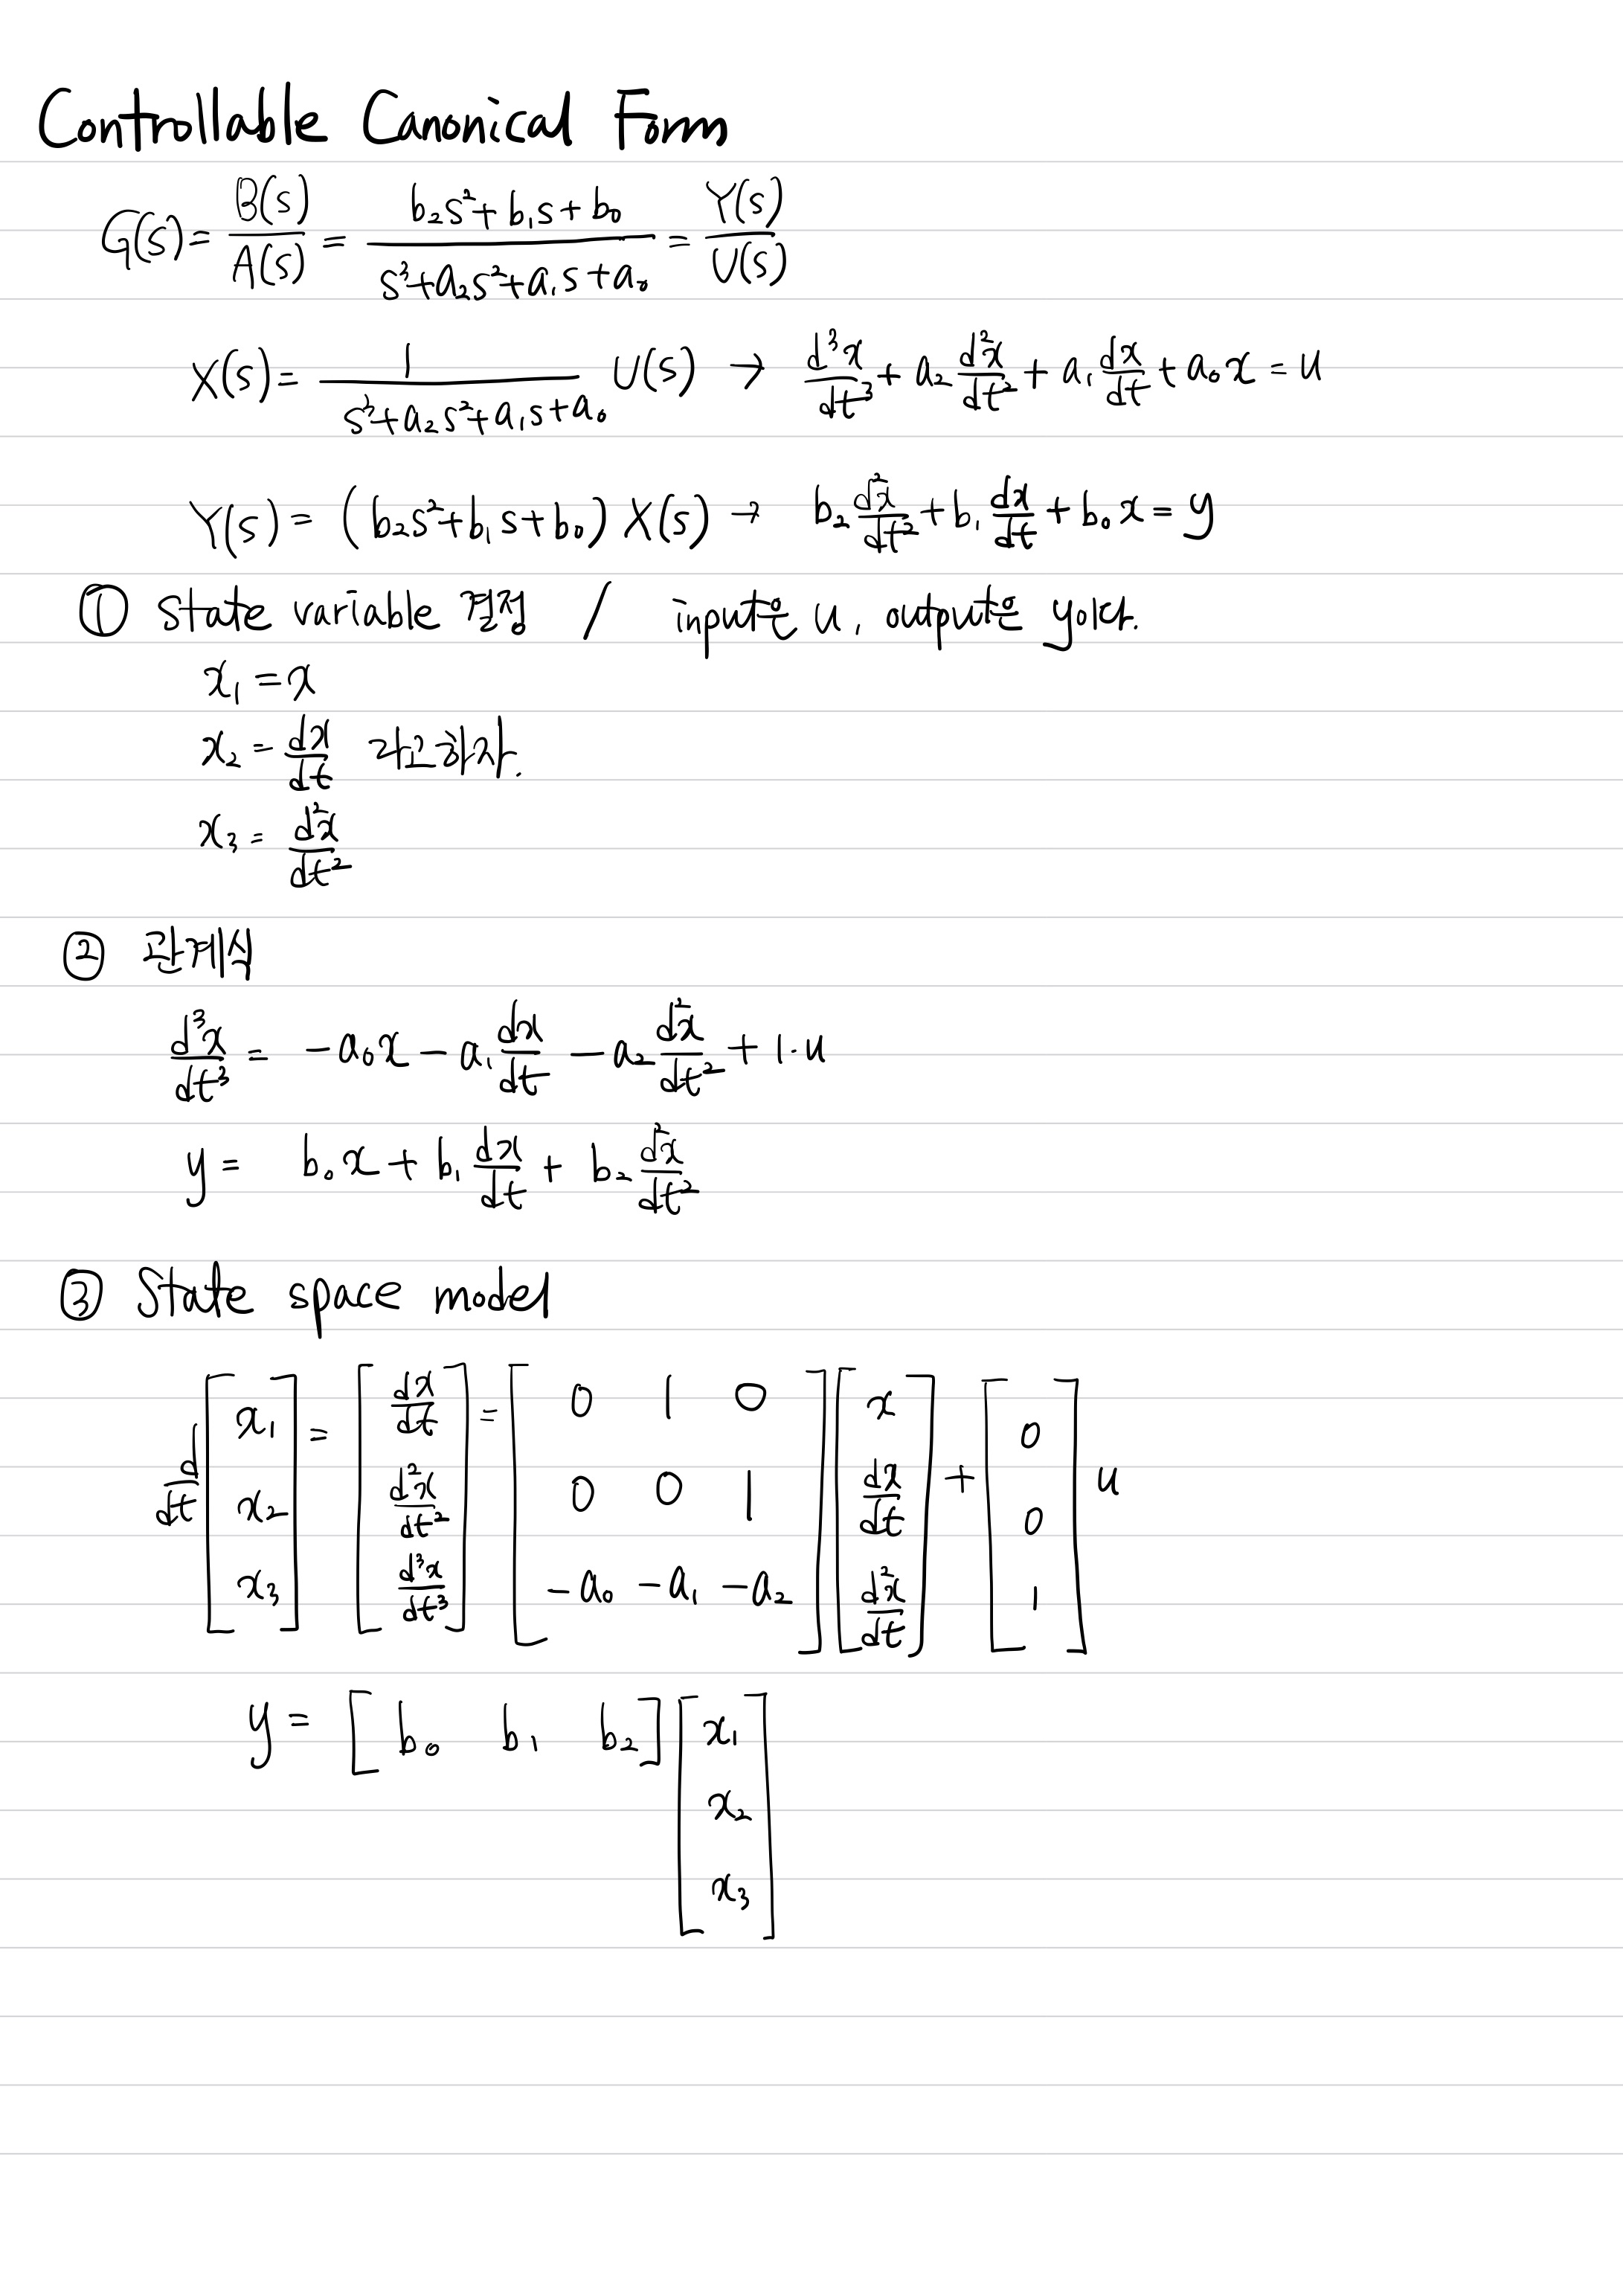 Controllable Canonical Form
G(s) = B(s)/A(s) = (b₂s²+b₁s+b₀)/(s³+a₂s²+a₁s+a₀) = Y(s)/U(s)
X(s) = 1/(s³+a₂s²+a₁s+a₀) U(s) → d³x/dt³ + a₂ d²x/dt² + a₁ dx/dt + a₀x = u
Y(s) = (b₂s²+b₁s+b₀) X(s) → b₂ d²x/dt² + b₁ dx/dt + b₀x = y
① state variable 결정 / input은 u, output은 y이다.
x₁ = x
x₂ = dx/dt 라고하자.
x₃ = d²x/dt²
② 관계식
d³x/dt³ = -a₀x - a₁ dx/dt - a₂ d²x/dt² + 1·u
y = b₀x + b₁ dx/dt + b₂ d²x/dt²
③ State space model
d/dt [x₁; x₂; x₃] = [dx/dt; d²x/dt²; d³x/dt³] = [0 1 0; 0 0 1; -a₀ -a₁ -a₂] [x; dx/dt; d²x/dt] + [0; 0; 1] u
y = [b₀ b₁ b₂] [x₁; x₂; x₃]